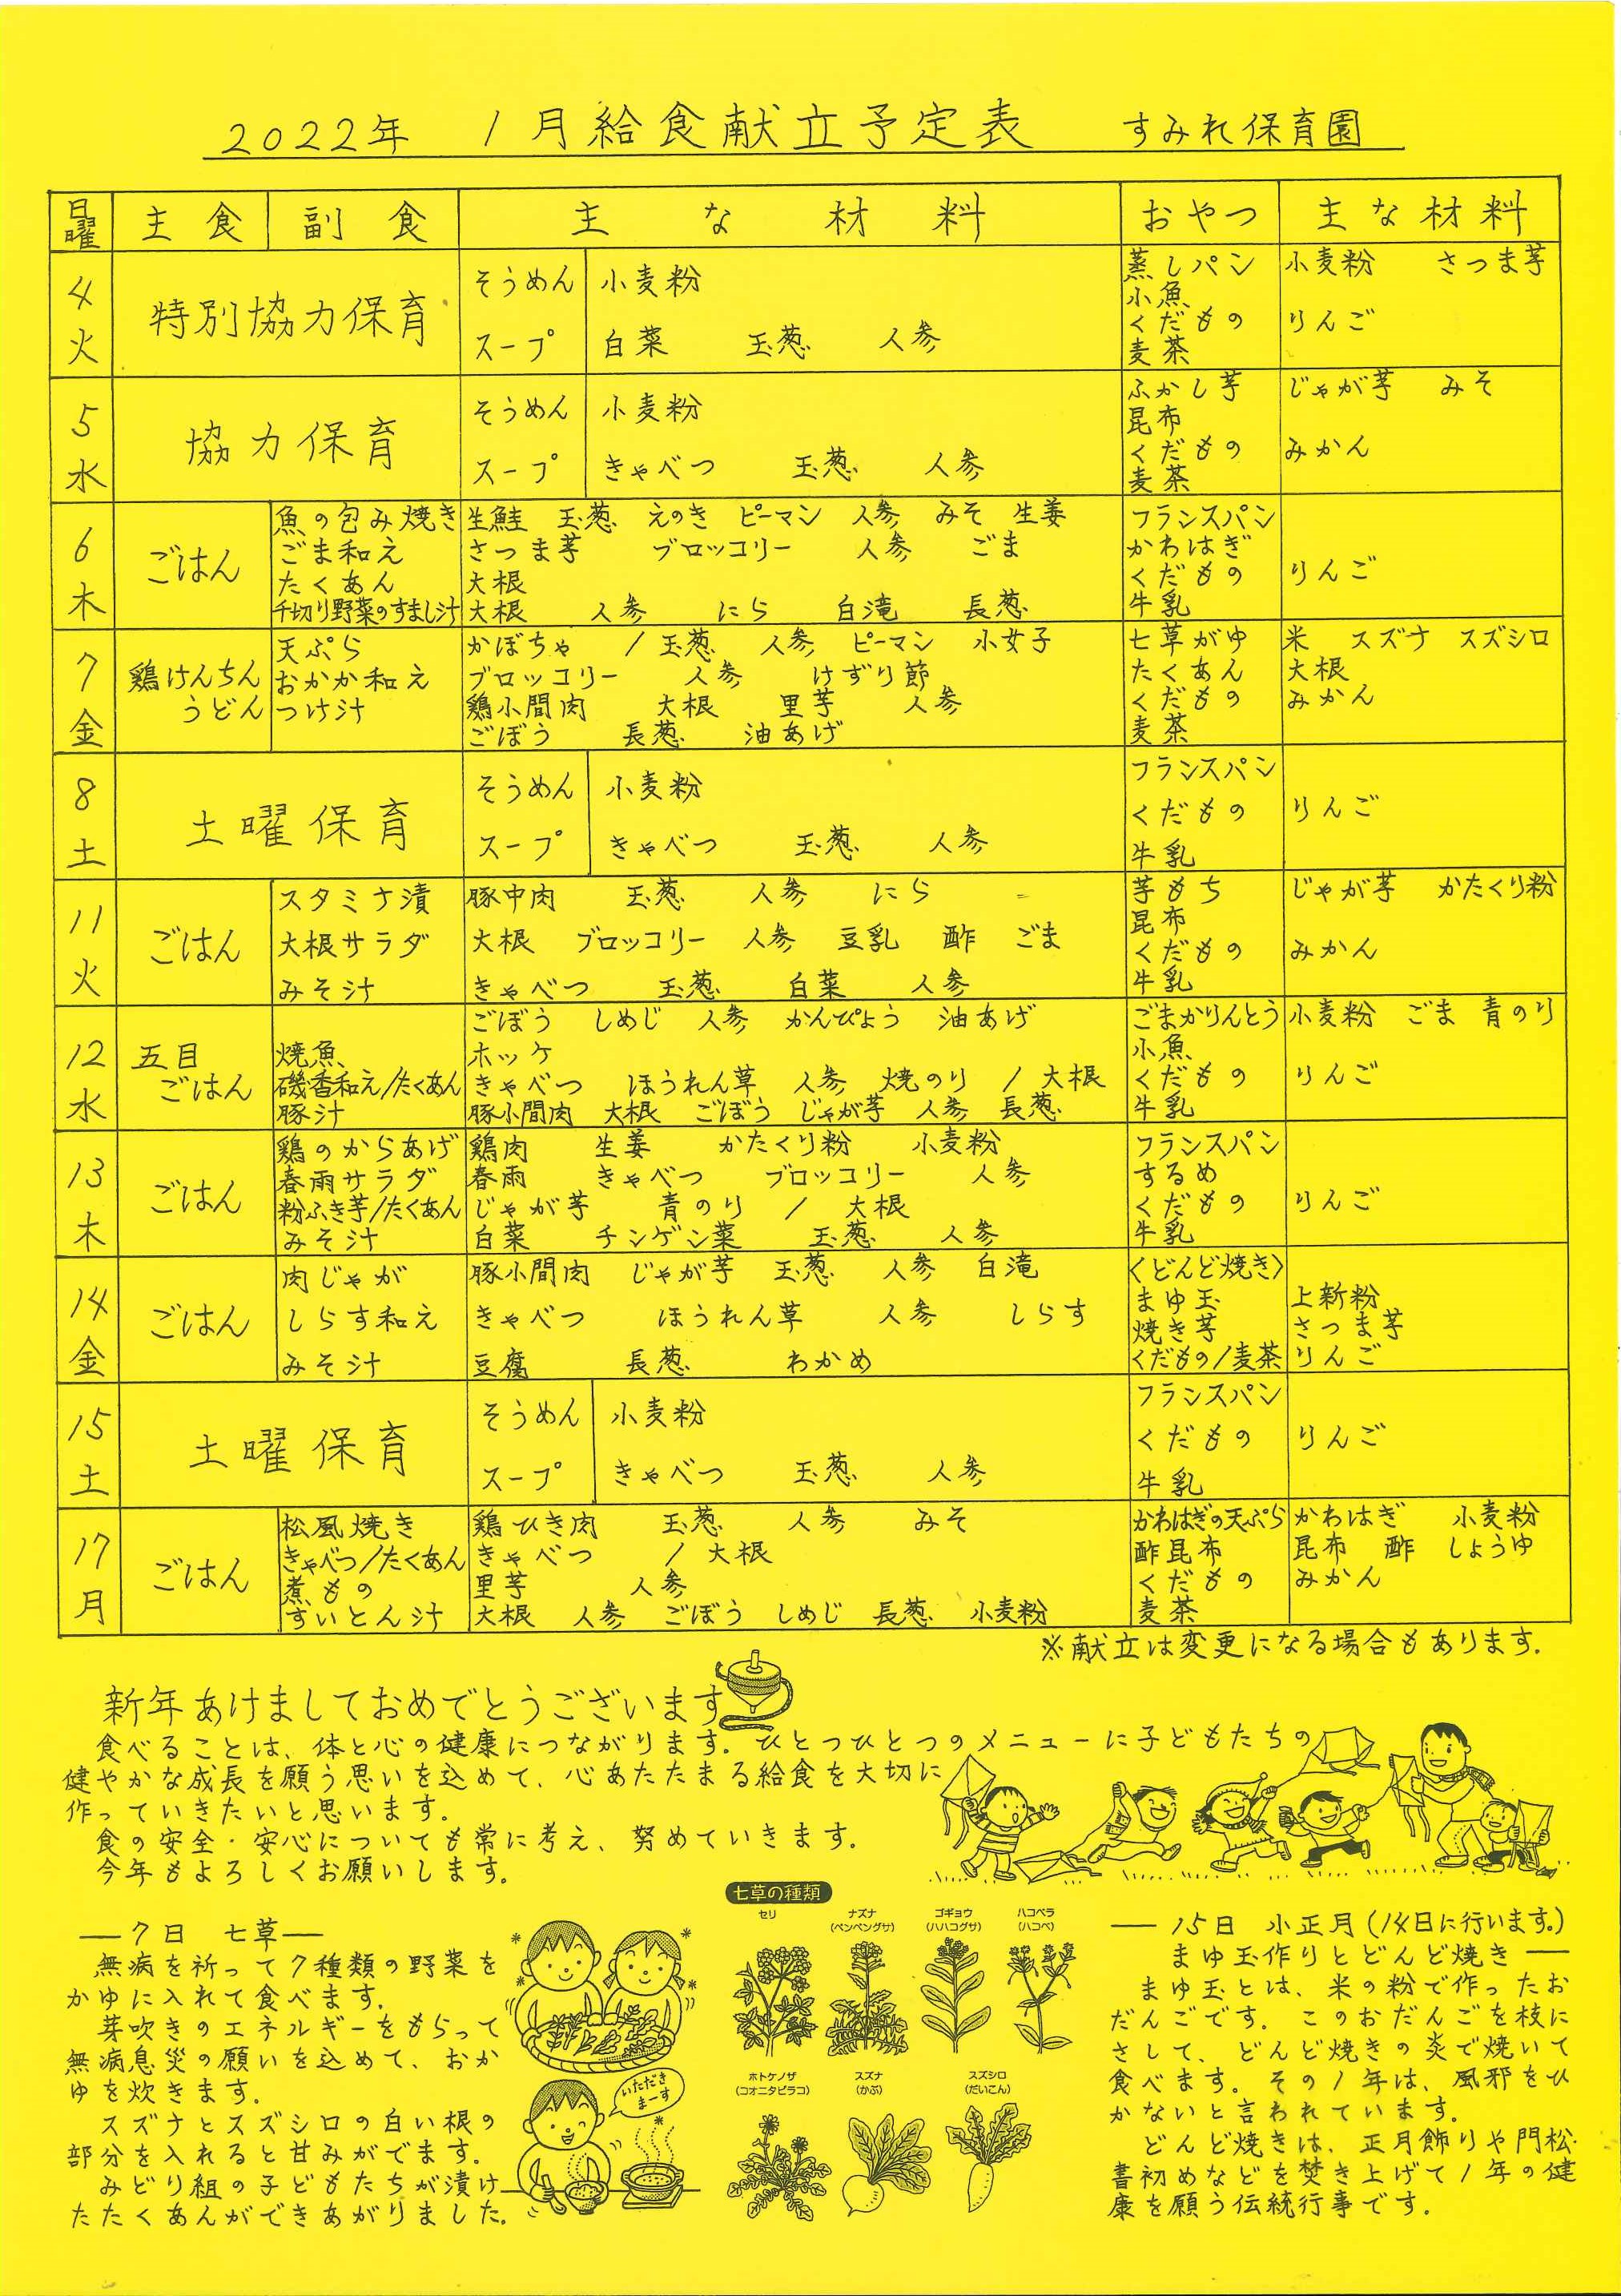 2022年 1月給食献立予定表 すみれ保育園
日曜 主食 副食 主な材料 おやつ 主な材料
4 火 特別協力保育
そうめん 小麦粉
スープ 白菜 玉葱 人参
蒸しパン 小麦粉 さつま芋
小魚
くだもの りんご
麦茶
5 水 協力保育
そうめん 小麦粉
スープ きゃべつ 玉葱 人参
ふかし芋 じゃが芋 みそ
昆布
くだもの みかん
麦茶
6 木 ごはん
魚の包み焼き 生鮭 玉葱 えのき ピーマン 人参 みそ 生姜
ごま和え さつま芋 ブロッコリー 人参 ごま
たくあん 大根
千切り野菜のすまし汁 大根 人参 にら 白滝 長葱
フランスパン
かわはぎ
くだもの りんご
牛乳
7 金 鶏けんちんうどん
天ぷら かぼちゃ / 玉葱 人参 ピーマン 小女子
おかか和え ブロッコリー 人参 けずり節
つけ汁 鶏小間肉 大根 里芋 人参
ごぼう 長葱 油あげ
七草がゆ 米 スズナ スズシロ
たくあん 大根
くだもの みかん
麦茶
8 土 土曜保育
そうめん 小麦粉
スープ きゃべつ 玉葱 人参
フランスパン
くだもの りんご
牛乳
11 火 ごはん
スタミナ漬 豚中肉 玉葱 人参 にら
大根サラダ 大根 ブロッコリー 人参 豆乳 酢 ごま
みそ汁 きゃべつ 玉葱 白菜 人参
芋もち じゃが芋 かたくり粉
昆布
くだもの みかん
牛乳
12 水 五目ごはん
ごぼう しめじ 人参 かんぴょう 油あげ
焼魚 ホッケ
磯香和え/たくあん きゃべつ ほうれん草 人参 焼のり / 大根
豚汁 豚小間肉 大根 ごぼう じゃが芋 人参 長葱
ごまかりんとう 小麦粉 ごま 青のり
小魚
くだもの りんご
牛乳
13 木 ごはん
鶏のからあげ 鶏肉 生姜 かたくり粉 小麦粉
春雨サラダ 春雨 きゃべつ ブロッコリー 人参
粉ふき芋/たくあん じゃが芋 青のり / 大根
みそ汁 白菜 チンゲン菜 玉葱 人参
フランスパン
するめ
くだもの りんご
牛乳
14 金 ごはん
肉じゃが 豚小間肉 じゃが芋 玉葱 人参 白滝
しらす和え きゃべつ ほうれん草 人参 しらす
みそ汁 豆腐 長葱 わかめ
〈どんど焼き〉
まゆ玉 上新粉
焼き芋 さつま芋
くだもの/麦茶 りんご
15 土 土曜保育
そうめん 小麦粉
スープ きゃべつ 玉葱 人参
フランスパン
くだもの りんご
牛乳
17 月 ごはん
松風焼き 鶏ひき肉 玉葱 人参 みそ
きゃべつ/たくあん きゃべつ / 大根
煮もの 里芋 人参
すいとん汁 大根 人参 ごぼう しめじ 長葱 小麦粉
かわはぎの天ぷら かわはぎ 小麦粉
酢昆布 昆布 酢 しょうゆ
くだもの みかん
麦茶
※献立は変更になる場合もあります.
新年あけましておめでとうございます
食べることは、体と心の健康につながります。ひとつひとつのメニューに子どもたちの
健やかな成長を願う思いを込めて、心あたたまる給食を大切に
作っていきたいと思います。
食の安全・安心についても常に考え、努めていきます。
今年もよろしくお願いします。
―7日 七草―
無病を祈って7種類の野菜を
かゆに入れて食べます。
芽吹きのエネルギーをもらって
無病息災の願いを込めて、おか
ゆを炊きます。
スズナとスズシロの白い根の
部分を入れると甘みがでます。
みどり組の子どもたちが漬け
たたくあんができあがりました。
いただき
まーす
七草の種類
セリ
ナズナ
(ペンペングサ)
ゴギョウ
(ハハコグサ)
ハコベラ
(ハコベ)
ホトケノザ
(コオニタビラコ)
スズナ
(かぶ)
スズシロ
(だいこん)
― 15日 小正月(14日に行います。)
まゆ玉作りとどんど焼き ―
まゆ玉とは、米の粉で作ったお
だんごです。このおだんごを枝に
さして、どんど焼きの炎で焼いて
食べます。その1年は、風邪をひ
かないと言われています。
どんど焼きは、正月飾りや門松・
書初めなどを焚き上げて1年の健
康を願う伝統行事です。